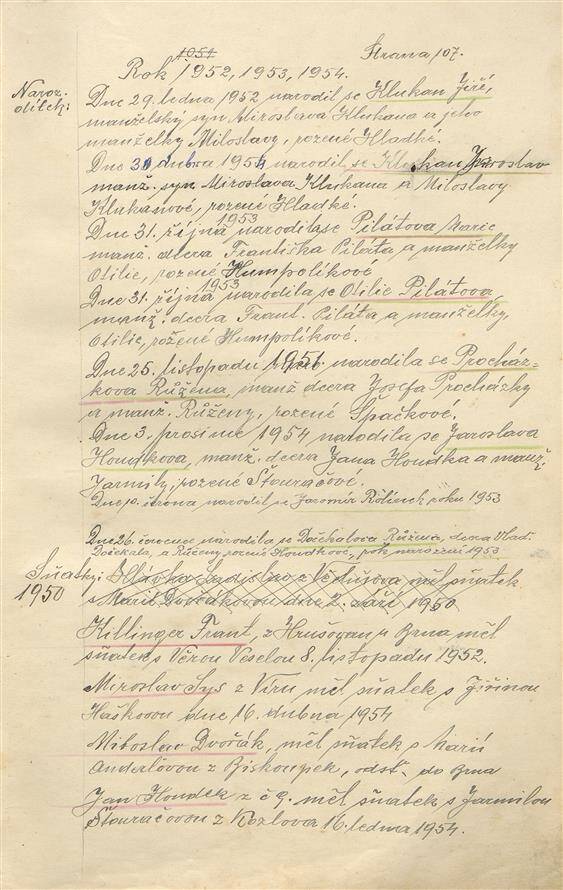 1951
Rok 1952, 1953, 1954. Strana 107.
Naroz. dítek:
Dne 29. ledna 1952 narodil se Klukan Jiří,
manželský syn Miroslava Klukana a jeho
manželky Miloslavy, rozené Hladké.
Dne 30 dubna 1954 narodil se Klukan Jaroslav
manž. syn Miroslava Klukana a Miloslavy
Klukanové, rozené Hladké.
Dne 31. října 1953 narodila se Pilátova Marie
manž. dcera Františka Piláta a manželky
Otilie, rozené Humpolíkové
Dne 31. října 1953 narodila se Otilie Pilátova,
manž. dcera Frant. Piláta a manželky
Otilie, rožené Humpolíkové.
Dne 25. listopadu 1951. narodila se Procház-
kova Růžena, manž dcera Josefa Procházky
a manž. Růženy, rozené Špačkové.
Dne 3. prosince 1954 narodila se Jaroslava
Houdkova, manž. dcera Jana Houdka a manž.
Jarmily, rozené Štouračové.
Dne června narodil se Jaromír roku 1953
Dne 26. července národila se Dočkalova Růžena, dcera Vlad.
Dočkala, a Růženy rozené Houdkové, rok narození 1953
Sňatky: 1950
Hlávka Ladislav z měl sňatek
s Marií Dvořákovou dne 2. září 1950
Killinger Frant, z Hrušovan u Brna měl
sňatek s Věrou Veselou 8. listopadu 1952.
Miroslav Sys z Víru měl sňatek s Jiřinou
Haškovou dne 16. dubna 1954
Miloslav Dvořák, měl sňatek s Marií
Anderlovou z Biskoupek, odst. do Brna
Jan Houdek z č 9. měl sňatek s Jarmilou
Štouračovou z Kozlova 16. ledna 1954.